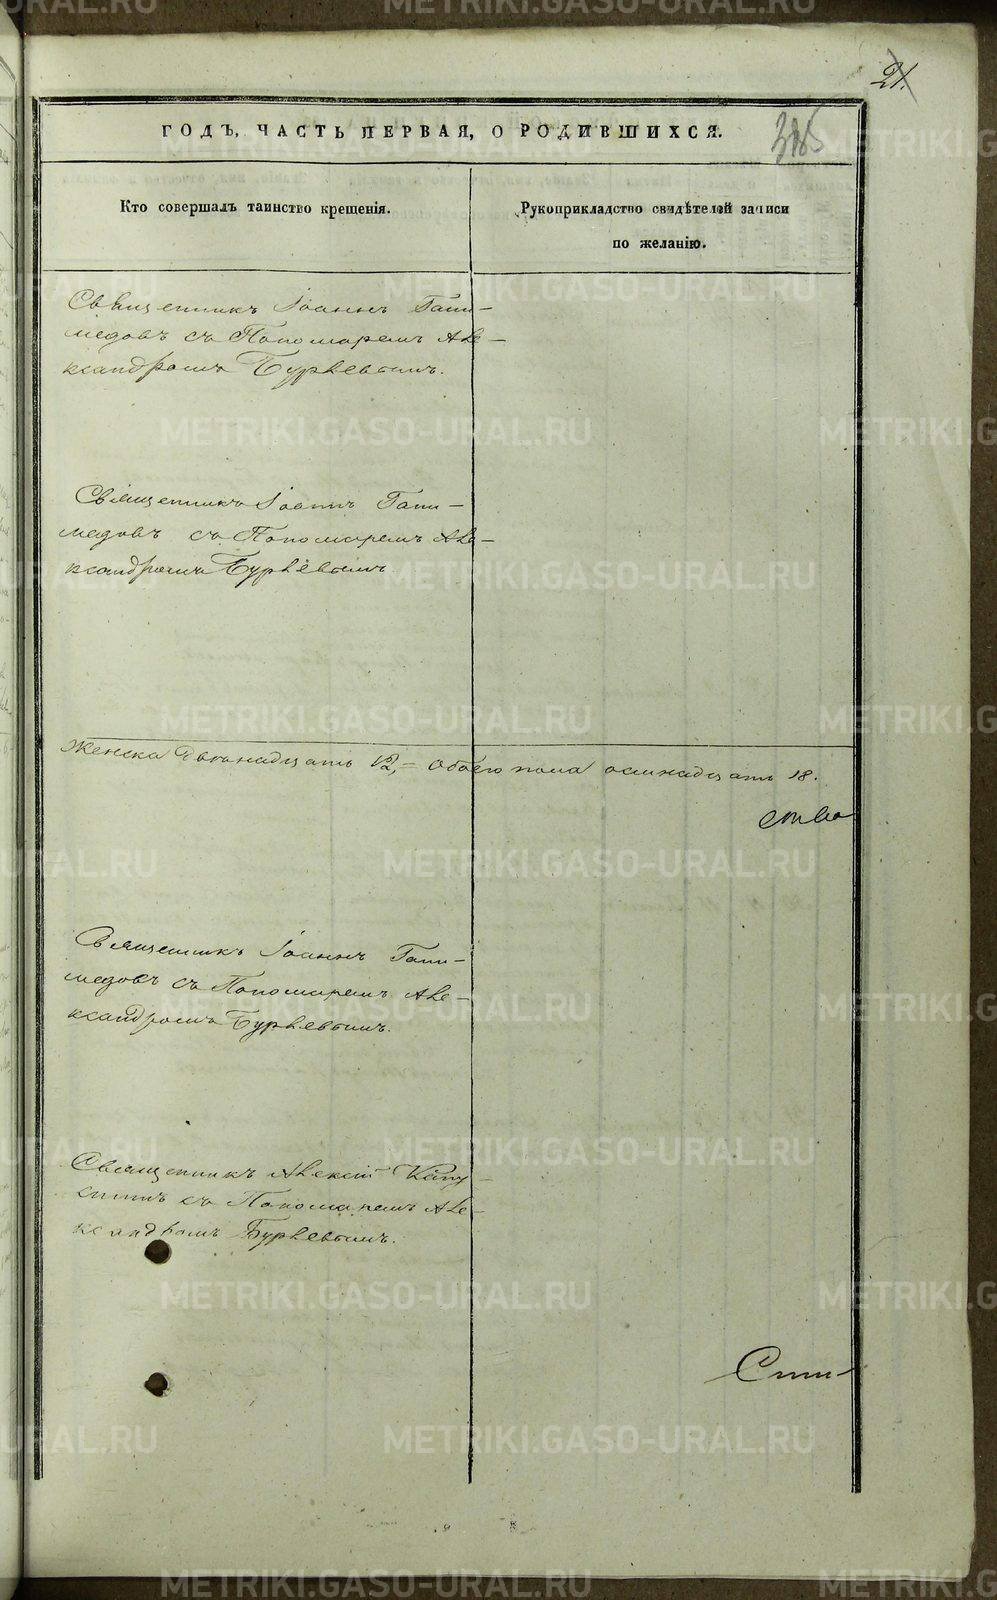 21.
385
ГОДЪ, ЧАСТЬ ПЕРВАЯ, О РОДИВШИХСЯ.
Кто совершалъ таинство крещенія.
Рукоприкладство свидѣтелей записи
по желанію.
Священникъ Іоаннъ Гани-
медовъ съ Пономаремъ Але-
ксандромъ Бурлевымъ.
Священникъ Іоаннъ Гани-
медовъ съ Пономаремъ Але-
ксандромъ Бурлевымъ
Женска двѣнадцать 12, = обоего пола осмнадцать 18.
Священникъ Іоаннъ Гани-
медовъ съ Пономаремъ Але-
ксандромъ Бурлевымъ.
Священникъ Алексій Капу-
стинъ съ Пономаремъ Але-
ксандромъ Бурлевымъ.
METRIKI.GASO-URAL.RU